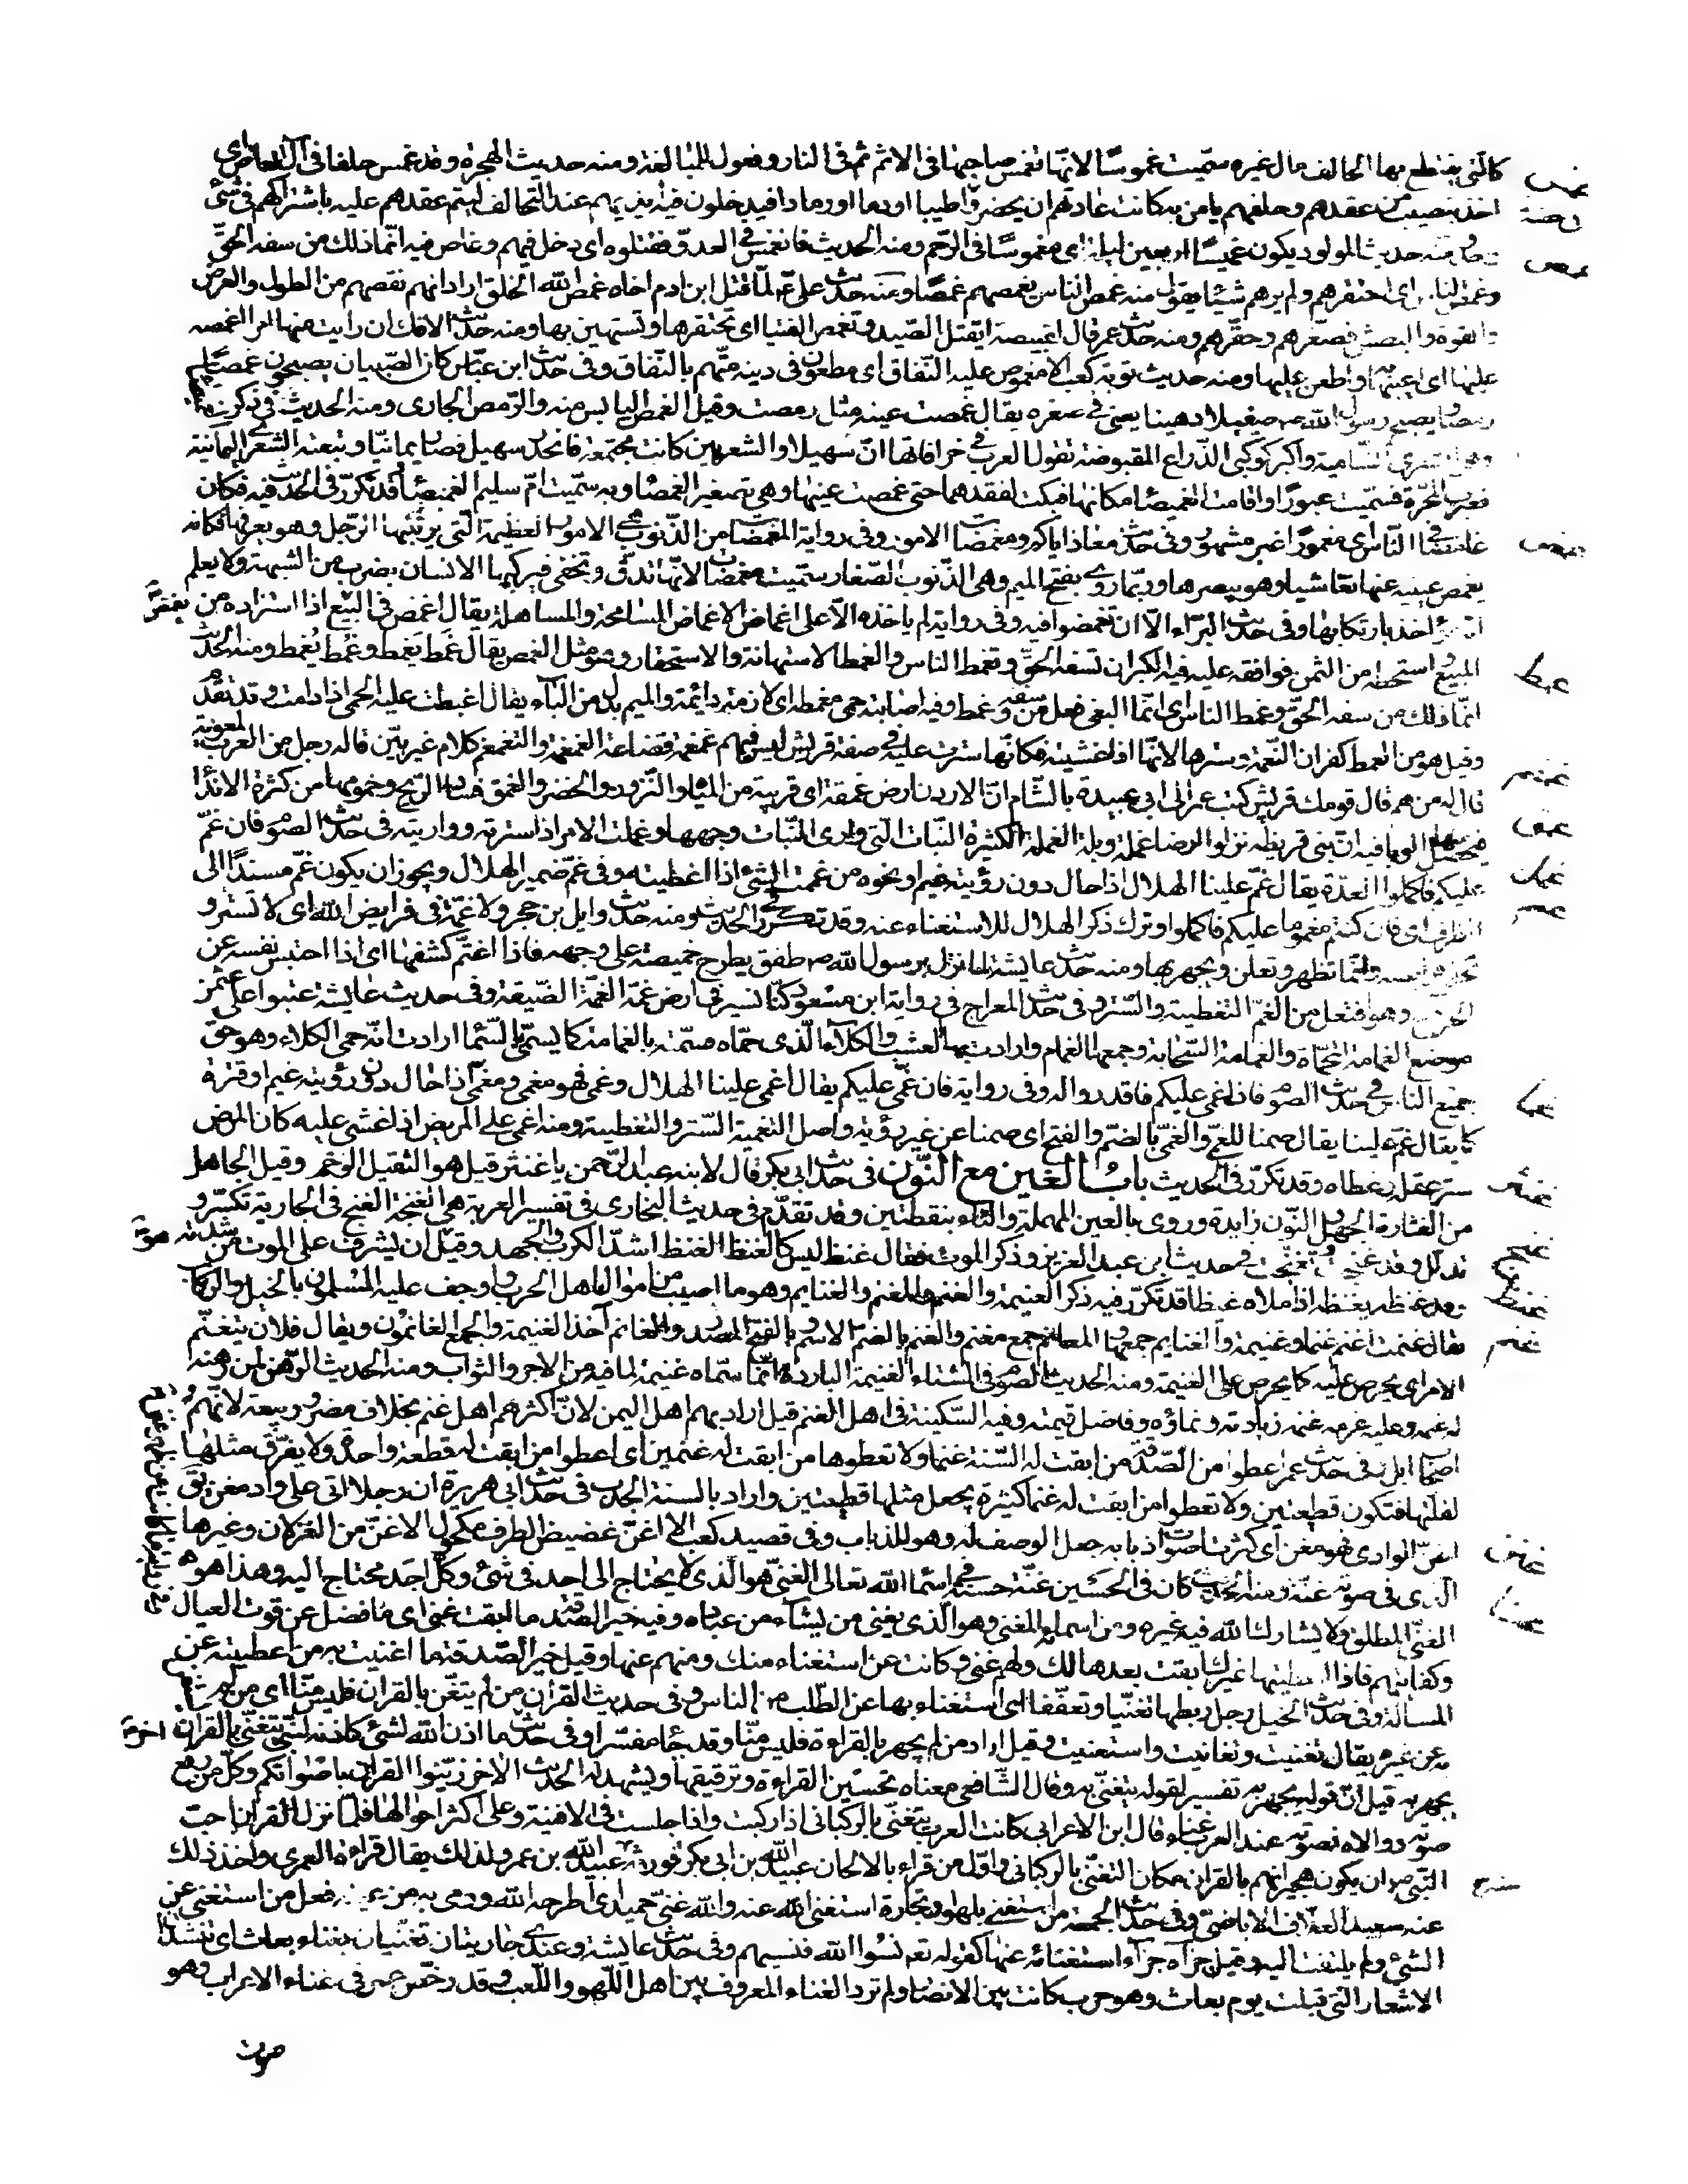 كالتى يقتطع بها الحالف مال غيره سمّيت غموسًا لانّها تغمس صاحبها فى الاثم ثم فى النار وفعول للمبالغة ومنه حديث الهجرة وقد غمس حلفا فى آل العاص اى
اخذ بنصيب من عقدهم وحلفهم يامن به كانت عادتهم ان يحضروا طيبا اودما اورمادا فيدخلون فيه ايديهم عند التحالف ليتم عقدهم عليه باشتراكهم فى شئ
ومنه حديث المولود يكون غميسًا اربعين ليلة اى مغموسًا فى الرّحم ومنه الحديث فانغمس فى العدوّ فقتلوه اى دخل فيهم وغاص فيه انّما ذلك من سفه الحقّ
وغمص الناس اى احتقرهم ولم يرهم شيئا يقول منه غمص الناس يغمصهم غمصًا ومنه حديث علىّ لمّا قتل ابن ادم اخاه غمص الله الخلق اراد انهم نقصهم من الطول والعرض
والقوة والبطش فصغّرهم وحقّرهم ومنه حديث عمر قال لقبيصة اتقتل الصّيد وتغمص الفتيا اى تحتقرها وتستهين بها ومنه حديث الافك ان رايت منها امرا اغمصه
عليها اى اعيبها به واطعن عليها ومنه حديث توبة كعب الا مغموص عليه النّفاق اى مطعون فى دينه متّهم بالنّفاق وفى حديث ابن عبّاس كان الصّبيان يصبحون غمصًا
رمصا ويصبح رسول الله ص صقيلا دهينا يعنى فى صغره يقال غمصت عينه مثل رمصت وقيل الغمص اليابس منه والرّمص الجارى ومنه الحديث فى ذكر
وهى الشعرى الشّامية واكبر كوكبى الذّراع المقبوضة تقول العرب فى خرافاتها انّ سهيلا والشعريين كانت مجتمعة فانحدر سهيل فصار يمانيّا وتبعته الشعرى اليمانية
فعبرت المجرّة فسمّيت عبورًا واقامت الغميصا مكانها فبكت لفقدهما حتى غمصت عينها وهى تصغير الغمصاء وبه سمّيت امّ سليم الغميصاء قد تكرّر فى الحديث فيه فكان
غامضا فى النّاس اى مغمورًا غير مشهور وفى حديث معاذ اياكم ومغمضات الامور وفى رواية المغمضات من الذّنوب هى الامور العظيمة التى يركبها الرّجل وهو يعرفها فكانه
يغمض عينيه عنها تعاشيا وهو يبصرها وربّما روى بفتح الميم وهى الذّنوب الصّغار سمّيت مغمضات لانّها تدقّ وتخفى فيركبها الانسان بضرب من الشبهة ولا يعلم
انه مؤاخذ بارتكابها وفى حديث البراء الّا ان تغمضوا فيه وفى رواية لم ياخذه الّا على اغماض الاغماض المسامحة والمساهلة يقال اغمض فى البيع اذا استزاده من
المبيع واستحطه من الثمن فوافقه عليه فيه الكبر ان تسفه الحقّ وتغمط الناس والغمط الاستهانة والاستحقار وهو مثل الغمص يقال غَمَط يَغمِط وغَمِط يَغمَط ومنه الحديث
انّما ذلك من سفه الحقّ وغمط الناس اى انّما البغى فعل من سفه وغمط وفيه اصابته حمى مغمطة اى لازمة دائمة والميم بدل من الباء يقال اغبطت عليه الحمى اذا دامت وقد تقدّم
وقيل هو من الغمط كفران النّعمة وسترها لانّها اذا غشيته فكانّها سترت عليه فى صفة قريش ليس فيهم غمغمة قضاعة الغمغمة والتغمغم كلام غير بيّن قاله رجل من العرب لمعوية
قال له من هم قال قومك قريش كتب عمر الى ابى عبيدة بالشّام انّ الاردن ارض غمقة اى قريبة من المياه والنّزوز والخضر والغمق فساد الرّيح وخمومها من كثرة الانداء
فيحصل منها الوبا فيه انّ بنى قريظة نزلوا ارضا غملة وبلة الغملة الكثيرة النّبات التى وارى النّبات وجهها وغملت الامر اذا سترته وواريته فى حديث الصّوم فان غمّ
عليكم فاكملوا العدّة يقال غمّ علينا الهلال اذا حال دون رؤيته غيم او نحوه من غممت الشئ اذا غطيته وفى غمّ ضمير الهلال ويجوز ان يكون غمّ مسندًا الى
الظرف اى فان كنتم مغموما عليكم فاكملوا وترك ذكر الهلال للاستغناء عنه وقد تكرّر فى الحديث ومنه حديث وايل بن حجر ولا غمّة فى فرايض الله اى لا تستر و
تخفى وانّما تظهر وتعلن ويجهر بها ومنه حديث عايشة لما نزل برسول الله ص طفق يطرح خميصة على وجهه فاذا اغتمّ كشفها اى اذا احتبس نفسه عن
الخروج وهو افتعل من الغمّ التغطية والستر وفى حديث المعراج فى رواية ابن مسعود كنّا نسير فى ارض غمّة الغمّة الضّيقة وفى حديث عايشة عتبوا على عثمن
موضع الغمامة المحماة والغمامة السّحابة وجمعها الغمام وارادت بها العشب والكلاء الّذى حماه فسمّته بالغمامة كما يسمّى بالسّماء ارادت انّه حمى الكلاء وهو حق
جميع الناس فى حديث الصوم فان اغمى عليكم فاقدروا له وفى رواية فان غمّى عليكم يقال اغمى علينا الهلال وغمى فهو مغمى ومغمّى اذا حال دون رؤيته غيم او قترة
كما يقال غمّ علينا يقال صمنا للغمّى والغمّى بالضمّ والفتح اى صمنا عن غير رؤية واصل التغمية السّتر والتغطية ومنه اغمى على المريض اذا غشى عليه كان المرض
ستر عقله وغطاه وقد تكرّر فى الحديث باب الغين مع النّون فى حديث ابى بكر قال لابنه عبد الرّحمن يا غنثر قيل هو الثقيل الوخم وقيل الجاهل
من الغثارة الجهل والنّون زايدة وروى بالعين المهملة والتّاء بنقطتين وقد تقدّم فى حديث البخارى فى تفسير العربة هى الغنجة الغنج فى الجارية تكسّر و
تدلّل وقد غنجت وتغنّجت فى حديث ابن عبد العزيز وذكر الموت فقال غنظ ليس كالغنظ الغنظ اشدّ الكرب والجهد وقيل ان يشرف على الموت من شدته
وقد غنظه يغنظه اذا ملاه غيظا قد تكرّر فيه ذكر الغنيمة والغنم والمغنم والغنايم وهو ما اصيب من اموال اهل الحرب واوجف عليه المسلمون بالخيل والركاب
يقال غنمت اغنم غنما وغنيمة والغنايم جمعها والمغانم جمع مغنم والغنم بالضمّ الاسم وبالفتح المصدر والغانم آخذ الغنيمة والجمع الغانمون ويقال فلان يتغنّم
الامر اى يحرص عليه كما يحرص على الغنيمة ومنه الحديث الصّوم فى الشّتاء الغنيمة الباردة انّما سمّاه غنيمة لما فيه من الاجر والثواب ومنه الحديث الرّهن لمن رهنه
له غنمه وعليه غرمه غنمه زيادته ونماؤه وفاضل قيمته وفيه السّكينة فى اهل الغنم قيل اراد بهم اهل اليمن لانّ اكثرهم اهل غنم بخلاف مضر وربيعة لانّهم
اصحاب ابل فى حديث عمر اعطوا من الصّدقة من ابقت له السّنة غنما ولا تعطوها من ابقت له غنمين اى اعطوا من ابقت له قطعة واحدة ولا يفرّق مثلها
لقلّتها فتكون قطعتين ولا تعطوا من ابقت له غنما كثيرة يجعل مثلها قطعتين واراد بالسنة الجدب فى حديث ابى هريرة ان رجلا اتى على واد مغن يق
اغنّ الوادى فهو مغن اى كثرت اصوات ذبابه جعل الوصف له وهو للذباب وفى قصيد كعب الا اغنّ غضيض الطرف مكحول الاغنّ من الغزلان وغيرها
الّذى فى صوته غنّة ومنه الحديث كان فى الحسين غنّة حسنة فى اسما الله تعالى الغنىّ هو الّذى لا يحتاج الى احد فى شئ وكلّ احد محتاج اليه وهذا هو
الغنىّ المطلق ولا يشارك الله فيه غيره ومن اسمائه المغنى وهو الّذى يغنى من يشآء من عباده وفيه خير الصّدقة ما ابقت غنى اى ما فضل عن قوت العيال
وكفايتهم فاذا اعطيتها غيرك ابقت بعدها لك ولهم غنى وكانت عن استغناء منك ومنهم عنها وقيل خير الصّدقة ما اغنيت به من اعطيته عن
المسالة وفى حديث الخيل رجل ربطها تغنّيا وتعفّفا اى استغناء بها عن الطّلب من الناس وفى حديث القران من لم يتغنّ بالقران فليس منّا اى من لم
به عن غيره يقال تغنيت وتغانيت واستغنيت وقيل اراد من لم يجهر بالقراءة فليس منّا وقد جاء مفسّرا وفى حديث ما اذن الله لشئ كاذنه لنبىّ يتغنّى بالقران
يجهر به قيل انّ قوله يجهر به تفسير لقوله يتغنّى به وقال الشّافعى معناه تحسين القراءة وترقيقها ويشهد له الحديث الاخر زيّنوا القران باصواتكم وكلّ من رفع
صوته ووالاه فصوته عند العرب غناء وقال ابن الاعرابى كانت العرب تتغنّى بالركبانى اذا ركبت واذا جلست فى الافنية وعلى اكثر احوالها فلمّا نزل القران احبّ
النّبى ص ان يكون هجيراهم بالقران مكان التغنّى بالركبانى واوّل من قراء بالالحان عبيد الله بن ابى بكر فورثه عبيد الله بن عمر ولذلك يقال قراءة العمرى واخذ ذلك
عنه سعيد العلاف الاباضى وفى حديث الجمعة من استغنى بلهو او تجارة استغنى الله عنه والله غنىّ حميد اى اطرحه الله ورمى به من عينه فعل من استغنى عن
الشئ ولم يلتفت اليه وقيل جزاه جزآء استغنائه عنها كقوله تع نسُوا الله فنسيهم وفى حديث عايشة وعندى جاريتان تغنّيان بغناء بعاث اى تنشد
الاشعار التى قيلت يوم بعاث وهو حرب كانت بين الانصار ولم ترد الغناء المعروف بين اهل اللّهو واللّعب وقد رخّص عمر فى غناء الاعراب وهو
صوت